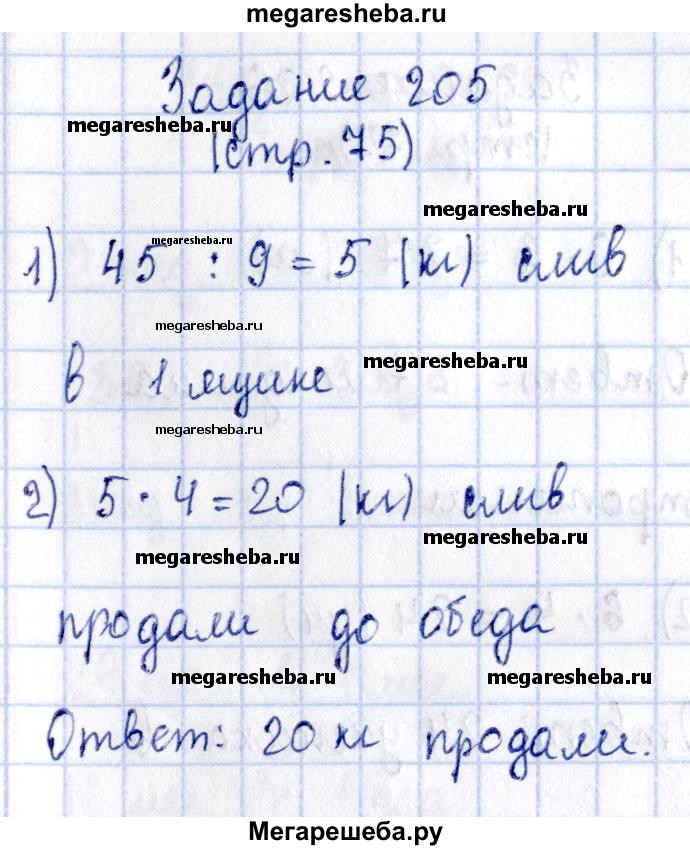 megaresheba.ru
Задание 205
megaresheba.ru
(стр. 75)
megaresheba.ru
megaresheba.ru
1) 45 : 9 = 5 (кг) слив
megaresheba.ru
megaresheba.ru
в 1 ящике
megaresheba.ru
2) 5 · 4 = 20 (кг) слив
megaresheba.ru
megaresheba.ru
продали до обеда
megaresheba.ru
megaresheba.ru
Ответ: 20 кг продали.
Мегарешеба.ру